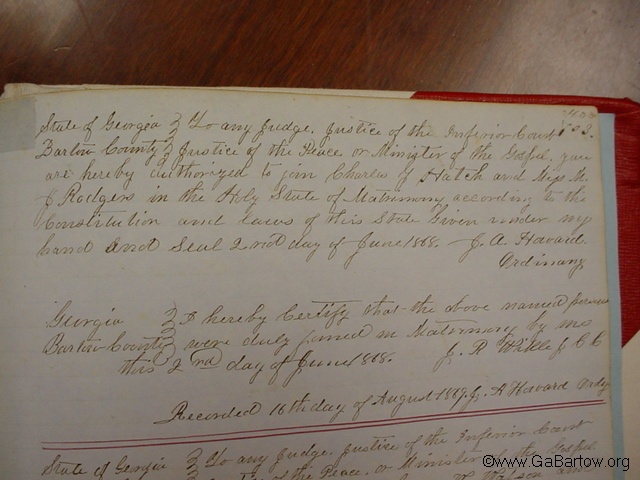 State of Georgia } To any Judge, Justice of the Inferior Court
Bartow County } Justice of the Peace, or Minister of the Gospel, you
are hereby authorized to join Charles J Hatch and Miss M.
J Rodgers in the Holy State of Matrimony according to the
Constitution and laws of this State Given under my
hand and Seal 2nd day of June 1868. J. A. Howard
Ordinary
Georgia } I hereby Certify that the above named persons
Bartow County } were duly joined in Matrimony by me
this 2nd day of June 1868. J. R. Wikle J C C
Recorded 16th day of August 1869. J. A Howard Ordy
State of Georgia } To any Judge, Justice of the Inferior Court
of the Peace, or Minister of the Gospel.
©www.GaBartow.org